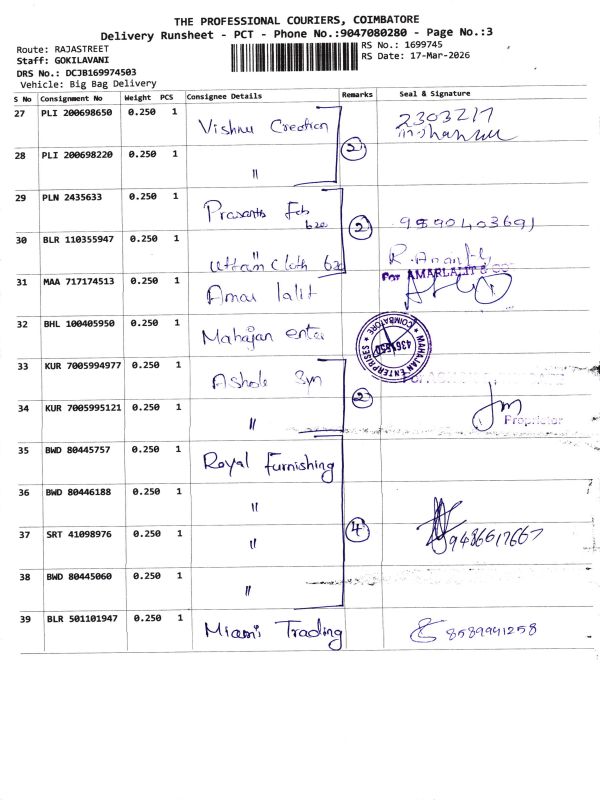 THE PROFESSIONAL COURIERS, COIMBATORE
Delivery Runsheet - PCT - Phone No.:9047080280 - Page No.:3
Route: RAJASTREET
RS No.: 1699745
Staff: GOKILAVANI
RS Date: 17-Mar-2026
DRS No.: DCJB169974503
Vehicle: Big Bag Delivery
S No Consignment No Weight PCS Consignee Details Remarks Seal & Signature
27 PLI 200698650 0.250 1 Vishnu Creation 2303217
28 PLI 200698220 0.250 1 〃 2
29 PLN 2435633 0.250 1 Prasanth 2
30 BLR 110355947 0.250 1 〃
Uttam Cloth
31 MAA 717174513 0.250 1 Amar lalit For AMARLALIT & CO
32 BHL 100405950 0.250 1 Mahajan ente MAHAJAN ENTERPRISES COIMBATORE
33 KUR 7005994977 0.250 1 Ashok 2
34 KUR 7005995121 0.250 1 〃 Proprietor
35 BWD 80445757 0.250 1 Royal Furnishing
36 BWD 80446188 0.250 1 〃 4
37 SRT 41098976 0.250 1 〃
38 BWD 80445060 0.250 1 〃
39 BLR 501101947 0.250 1 Miami Trading 8589941258